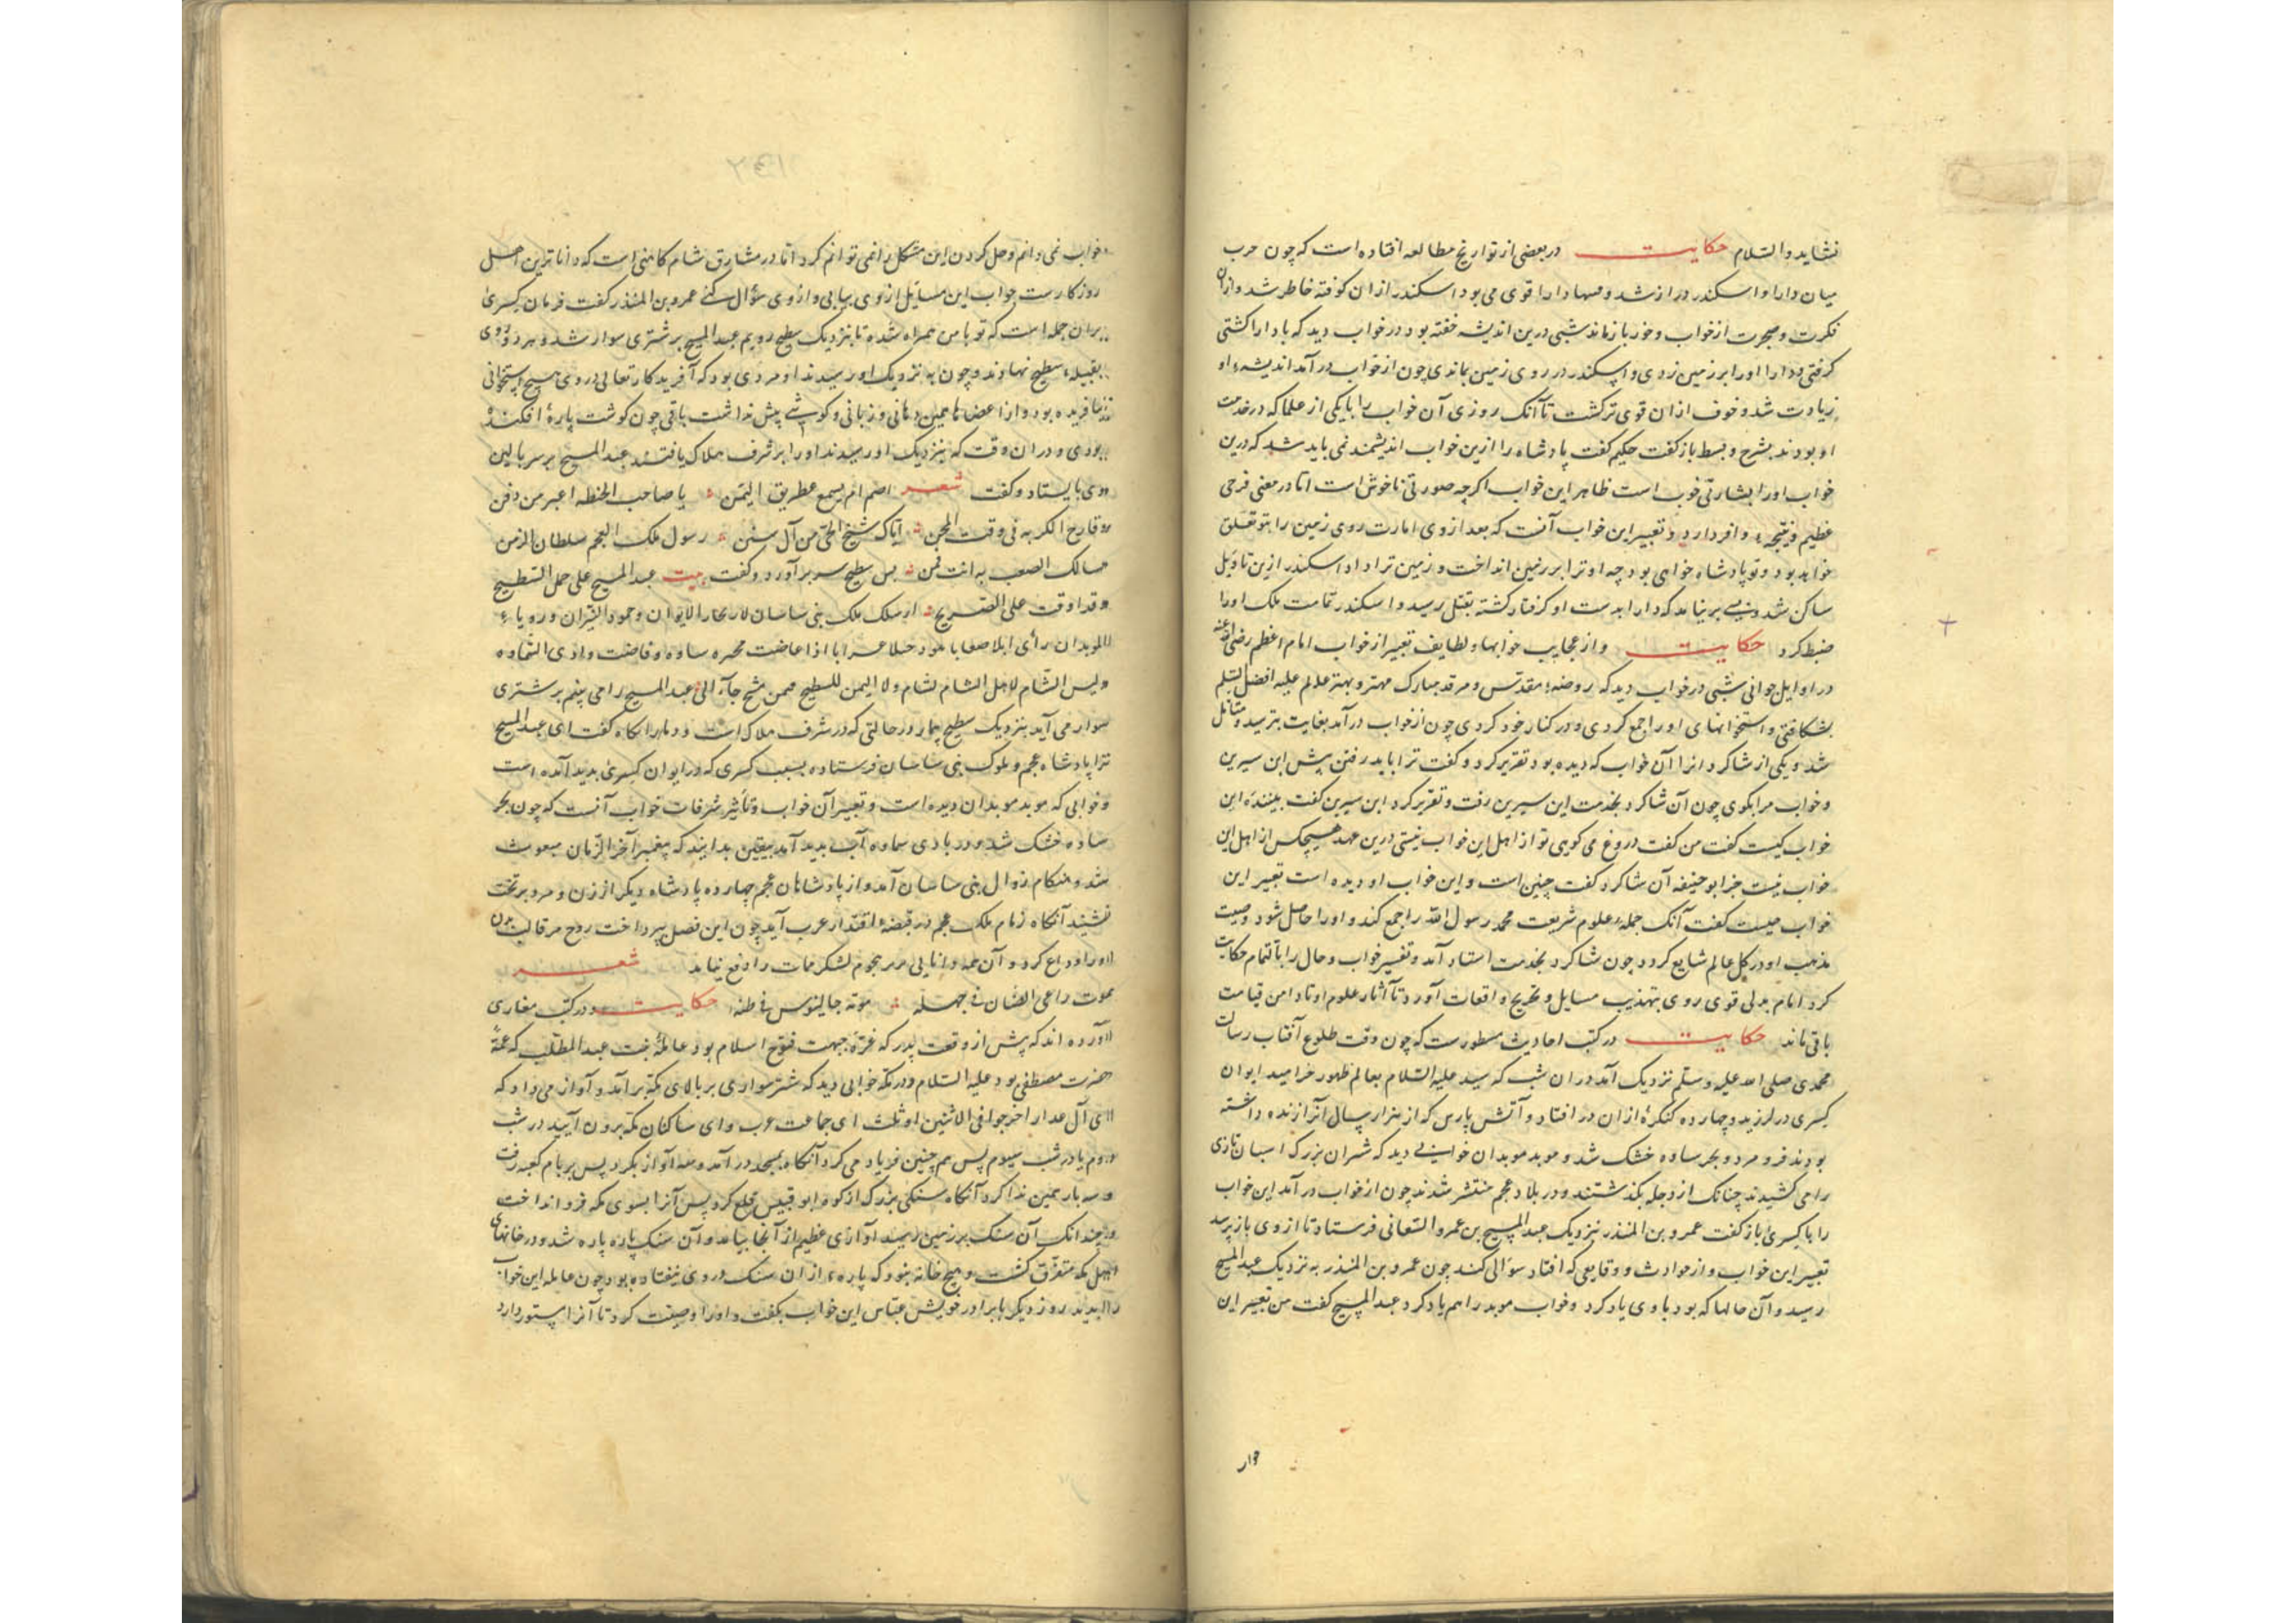 نشاید والسّلام حکایت در بعضی از تواریخ مطالعه افتاده است که چون حرب
میان دارا و اسکندر دراز شد و سپاه دارا قوی می بود اسکندر ازان کوفته خاطر شد و ازان
فکرت و ضجرت از خواب و خور بازماند شبی درین اندیشه خفته بود در خواب دید که با دارا کشتی
کرفتی و دارا اورا بر زمین زدی و اسکندر در روی زمین بماندی چون از خواب درآمد اندیشهء او
زیادت شد و خوف ازان قوی تر کشت تا آنک روزی آن خواب را با یکی از علما که در خدمت
او بودند بشرح و بسط باز کفت حکیم کفت پادشاه را ازین خواب اندیشمند نمی باید شد که درین
خواب اورا بشارتی خوب است ظاهر این خواب اکرچه صورتی ناخوش است اما در معنی فرحی
عظیم و نتیجهء وافر دارد و تعبیر این خواب آنست که بعد ازوی امارت روی زمین را بتو تعلق
خواهد بود و تو پادشاه خواهی بود چه او ترا بر زمین انداخت و زمین ترا داد اسکندر ازین تاویل
ساکن شد و بسی برنیامد که دارا بدست او کرفتار کشته بقتل رسید و اسکندر تمامت ملک اورا
ضبط کرد حکایت و از عجایب خوابها و لطایف تعبیر از خواب امام اعظم رضی الله عنه
در اوایل جوانی شبی در خواب دید که روضهء مقدس و مرقد مبارک مهتر و بهتر عالم علیه افضل التسلم
بشکافتی و استخوانهای اورا جمع کردی و در کنار خود کردی چون از خواب درآمد بغایت بترسید و متأمل
شد و یکی از شاکردانرا آن خواب که دیده بود تقریر کرد و کفت ترا باید رفتن پیش ابن سیرین
و خواب مرا بکوی چون آن شاکرد بخدمت ابن سیرین رفت و تقریر کرد ابن سیرین کفت بینندهٔ این
خواب کیست کفت من کفت دروغ می کویی تو از اهل این خواب نیستی درین عهد هیچکس از اهل این
خواب نیست جز ابوحنیفه آن شاکرد کفت چنین است و این خواب او دیده است تعبیر این
خواب چیست کفت آنک جملهء علوم شریعت محمد رسول الله را جمع کند و اورا حاصل شود و صیت
مذهب او در کل عالم شایع کردد چون شاکرد بخدمت استاد آمد و تفسیر خواب و حال را باتمام حکایت
کرد امام بدلی قوی روی بتهذیب مسایل و تخریج واقعات آورد تا آثار علوم او تا دامن قیامت
باقی ماند حکایت در کتب احادیث مسطورست که چون وقت طلوع آفتاب رسالت
محمدی صلی الله علیه وسلم نزدیک آمد دران شب که سید علیه السّلام بعالم ظهور خرامید ایوان
کسری در لرزید و چهارده کنکرهٔ ازان در افتاد و آتش پارس که از هزار سال آنرا زنده داشته
بودند فرو مرد و بحر ساوه خشک شد و موبد موبدان خوابی دید که شتران بزرک اسبان تازی
را می کشیدند چنانک از دجله بکذشتند و در بلاد عجم منتشر شدند چون از خواب درآمد این خواب
را با کسری باز کفت عمرو بن المنذر نزدیک عبدالمسیح بن عمرو الشعانی فرستاد تا ازوی باز پرسد
تعبیر این خواب و از حوادث و وقایعی که افتاد سؤالی کند چون عمرو بن المنذر به نزدیک عبدالمسیح
رسید و آن حالها که بود باوی یاد کرد و خواب موبد را هم یاد کرد عبدالمسیح کفت من تعبیر این
خواب نمی دانم و حل کردن این مشکل را نمی توانم کرد اما در مشارق شام کاهنی است که داناترین اهل
روزکارست جواب این مسایل ازوی بیابی و ازوی سؤال کنی عمرو بن المنذر کفت فرمان کسری
بران جمله است که تو با من همراه شده تا بنزدیک سطیح رویم عبدالمسیح بر شتری سوار شد و هر دو روی
بقبیلهء سطیح نهادند و چون به نزدیک او رسیدند او مردی بود که آفریدکار تعالی در وی هیچ استخوانی
نیافریده بود و از اعضا همین دهانی و زبانی و کوشی بیش نداشت باقی چون کوشت پارهٔ افکندهٔ
بودی و دران وقت که بنزدیک او رسیدند اورا بر شرف هلاک یافتند عبدالمسیح بر سر بالین
وی بایستاد و کفت شعر اصم ام یسمع غطریق الیمن یا صاحب الخطه اعبر من دفن
و قارح الکربه فی وقت المحن اتاک شیخ الحی من آل سنن رسول ملک العجم سلطان الزمن
مسالک الصعب به انت قمن پس سطیح سر برآورد و کفت بیت عبدالمسیح علی جمل السطیح
و قد اوقت علی الضریح ارسلک ملک بنی ساسان لارتجاز الایوان و خمود النیران و رویاء
الموبدان رأی ابلا صعابا تقود خیلا عرابا اذا غاضت بحیره ساوه و فاضت وادی السماوه
ولیس الشام لاهل الشام لشام ولا الیمن للسطیح فمن شیخ جاء الی عبدالمسیح را می بینم بر شتری
سوار می آید بنزدیک سطیح بیمار در حالتی که در شرف هلاک است آنکاه کفت ای عبدالمسیح
ترا پادشاه عجم و ملوک بنی ساسان فرستاده بسبب کسری که در ایوان کسری بدید آمده است
و خوابی که موبد موبدان دیده است و تعبیر آن خواب و تأثیر شرفات خواب آنست که چون بحر
ساوه خشک شد و در بادی سماوه آب بدید آمد بیقین بدانید که پیغمبر آخر الزّمان مبعوث
شد و هنکام زوال بنی ساسان آمد و از پادشاهان عجم چهارده پادشاه دیکر از زن و مرد بر تخت
نشیند آنکاه زمام ملک عجم در قبضهء اقتدار عرب آید چون این فصل بپرداخت روح مر قالب بدن
اورا وداع کرد و آن همه دانایی مر هجوم لشکر ممات را دفع نیامد شعر
یموت راعی الضّان فی جهله موته جالینوس فی طبه حکایت و در کتب مغازی
آورده اند که پیش از وقعت بدر که غرّهٔ جبهت فتوح اسلام بود عاتکهٔ بنت عبدالمطّلب که عمّهٔ
حضرت مصطفی بود علیه السّلام در مکّه خوابی دید که شتر سواری بر بالای مکّه برآمد و آواز می داد که
ای آل غدار اخرجوا فی الاثنین او ثلث ای جماعت عرب و ای ساکنان مکّه برون آیید در شب
دوم یا در شب سیوم پس هم چنین فریاد می کرد آنکاه بمسجد درآمد و همه آواز بکرد پس بر بام کعبه رفت
و سه بار همین ندا کرد آنکاه سنکی بزرک از کوه ابوقبیس قلع کرد پس آنرا بسوی مکه فرو انداخت
و چندانک آن سنک بر زمین رسید آوازی عظیم از آنجا بیامد و آن سنک پاره پاره شد و در خانهای
اهل مکه متفرق کشت و هیچ خانه نبود که پارهء ازان سنک در وی نیفتاده بود چون عاتکه این خواب
را بدید روز دیکر با برادر خویش عبّاس این خواب بکفت و اورا وصیت کرد تا آنرا مستور دارد